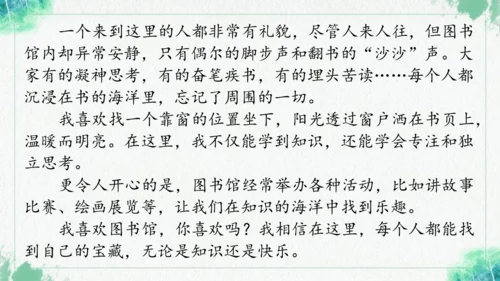 一个来到这里的人都非常有礼貌，尽管人来人往，但图书
馆内却异常安静，只有偶尔的脚步声和翻书的“沙沙”声。大
家有的凝神思考，有的奋笔疾书，有的埋头苦读……每个人都
沉浸在书的海洋里，忘记了周围的一切。
我喜欢找一个靠窗的位置坐下，阳光透过窗户洒在书页上，
温暖而明亮。在这里，我不仅能学到知识，还能学会专注和独
立思考。
更令人开心的是，图书馆经常举办各种活动，比如讲故事
比赛、绘画展览等，让我们在知识的海洋中找到乐趣。
我喜欢图书馆，你喜欢吗？我相信在这里，每个人都能找
到自己的宝藏，无论是知识还是快乐。